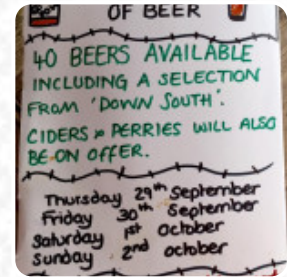 OF BEER
40 BEERS AVAILABLE
INCLUDING A SELECTION
FROM 'DOWN SOUTH'.
CIDERS & PERRIES WILL ALSO
BE ON OFFER.
Thursday 29th September
Friday 30th September
Saturday 1st October
Sunday 2nd October